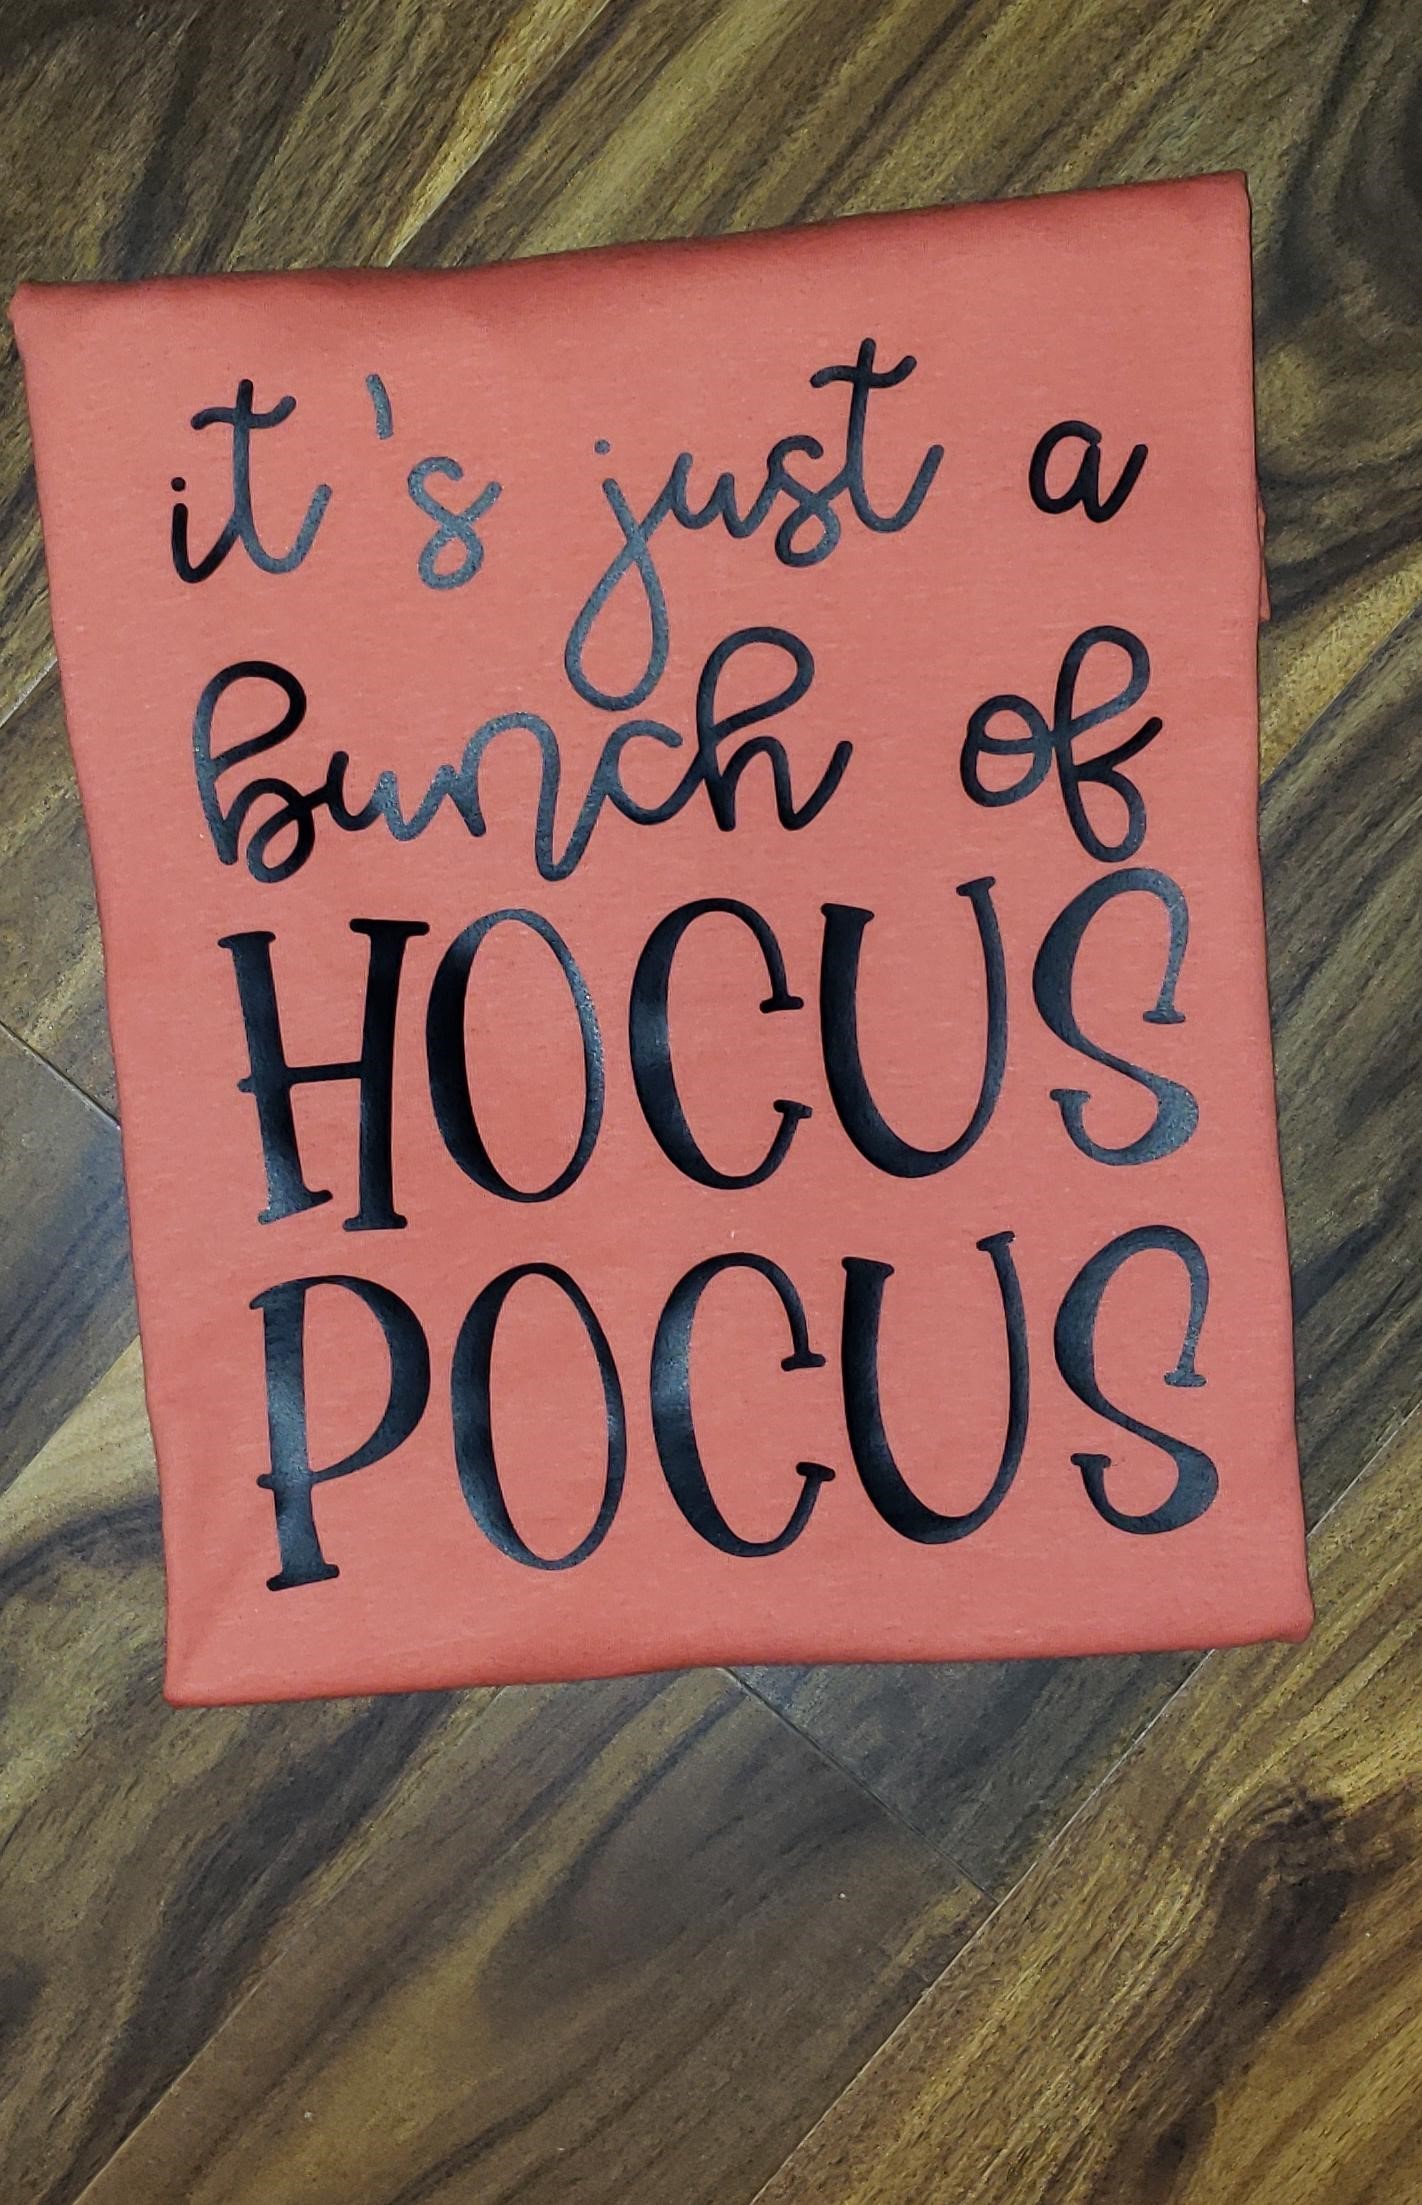 it's just a
bunch of
HOCUS
POCUS